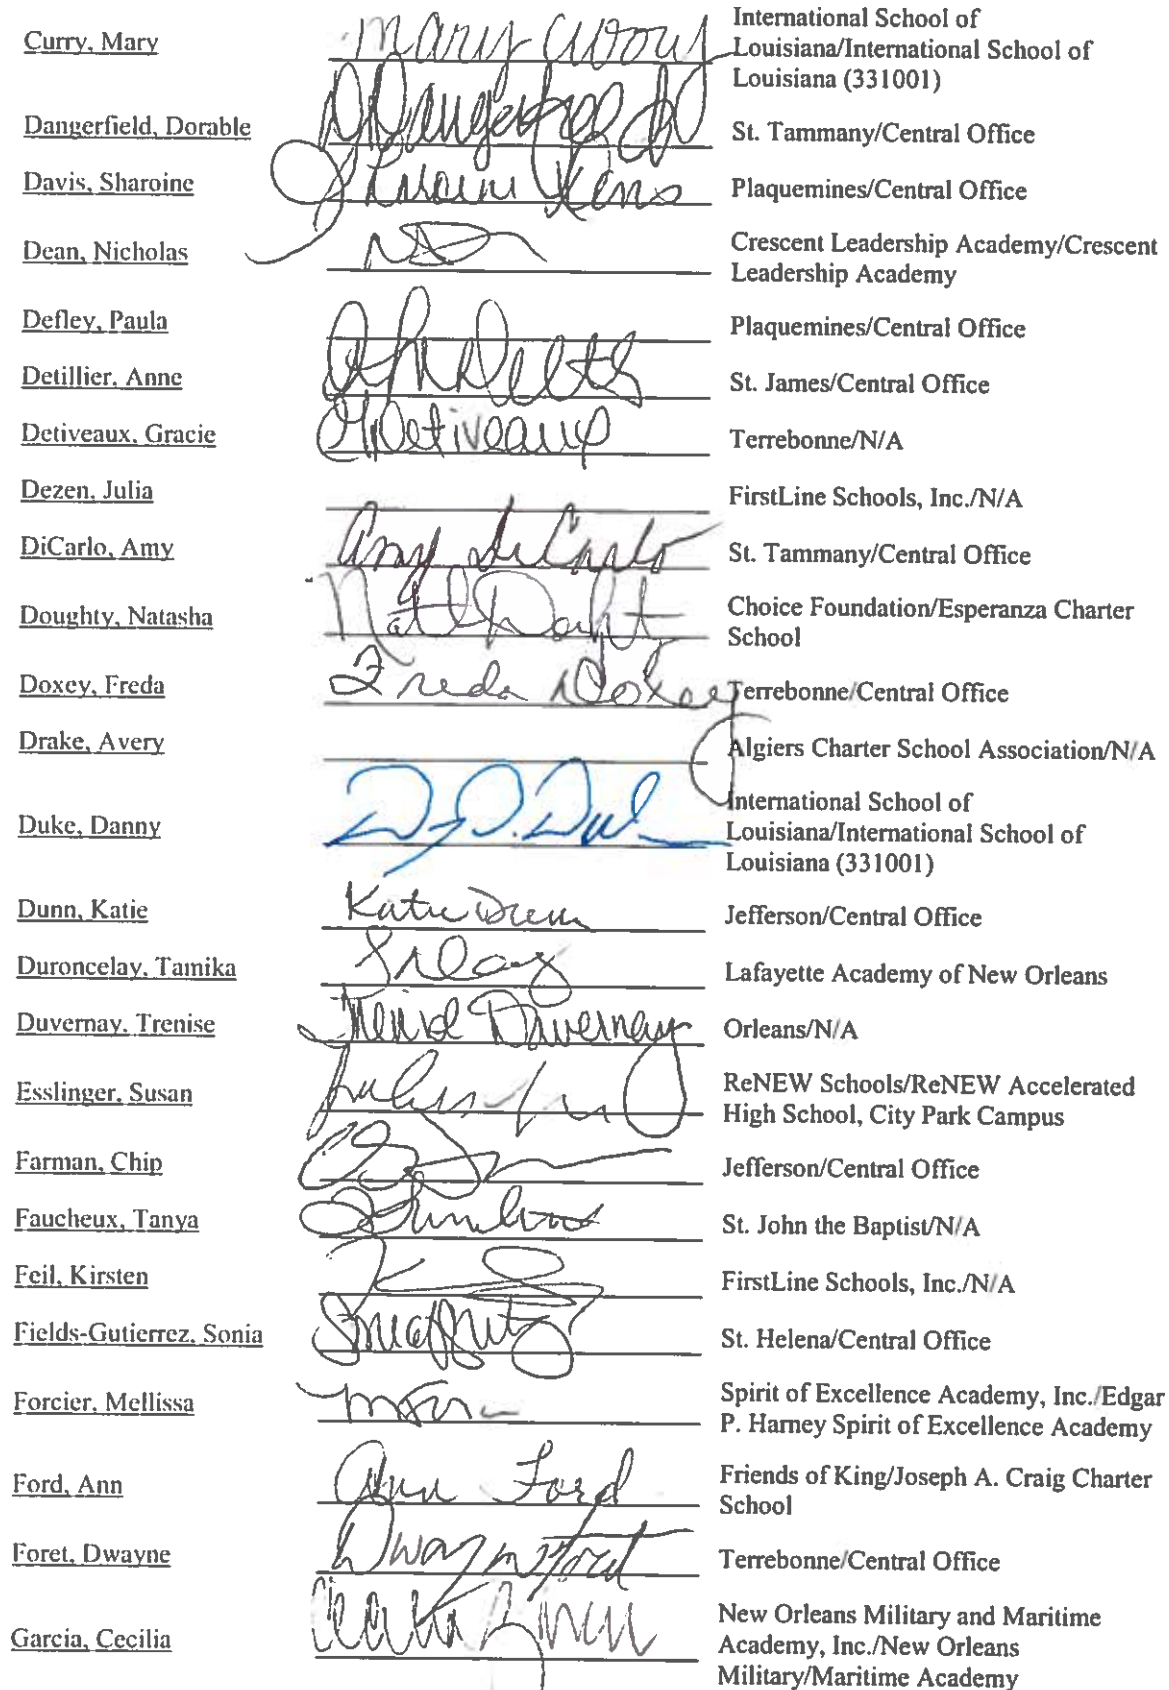 Curry, Mary Mary Curry International School of
Louisiana/International School of
Louisiana (331001)
Dangerfield, Dorable D Dangerfield St. Tammany/Central Office
Davis, Sharoine Plaquemines/Central Office
Dean, Nicholas ND Crescent Leadership Academy/Crescent
Leadership Academy
Defley, Paula Plaquemines/Central Office
Detillier, Anne St. James/Central Office
Detiveaux, Gracie GDetiveaux Terrebonne/N/A
Dezen, Julia FirstLine Schools, Inc./N/A
DiCarlo, Amy Amy DiCarlo St. Tammany/Central Office
Doughty, Natasha Choice Foundation/Esperanza Charter
School
Doxey, Freda Freda Doxey Terrebonne/Central Office
Drake, Avery Algiers Charter School Association/N/A
Duke, Danny International School of
Louisiana/International School of
Louisiana (331001)
Dunn, Katie Katie Dunn Jefferson/Central Office
Duroncelay, Tamika Lafayette Academy of New Orleans
Duvernay, Trenise Trenise Duvernay Orleans/N/A
Esslinger, Susan ReNEW Schools/ReNEW Accelerated
High School, City Park Campus
Farman, Chip Jefferson/Central Office
Faucheux, Tanya St. John the Baptist/N/A
Feil, Kirsten FirstLine Schools, Inc./N/A
Fields-Gutierrez, Sonia St. Helena/Central Office
Forcier, Mellissa Spirit of Excellence Academy, Inc./Edgar
P. Harney Spirit of Excellence Academy
Ford, Ann Ann Ford Friends of King/Joseph A. Craig Charter
School
Foret, Dwayne Dwayne Foret Terrebonne/Central Office
Garcia, Cecilia New Orleans Military and Maritime
Academy, Inc./New Orleans
Military/Maritime Academy